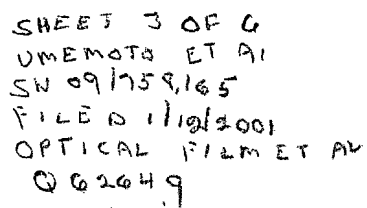 SHEET 3 OF 6
UMEMOTO ET AL
SN 09/758,165
FILED 1/12/2001
OPTICAL FILM ET AL
Q62649